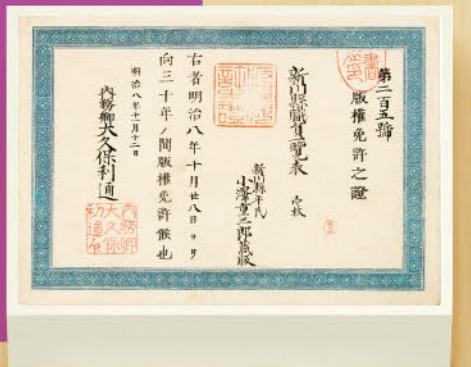 第二百五號
版權免許之證
新川縣職員一覧表 壱枚
新川縣平民
小澤重三郎蔵版
右者明治八年十月廿八日ヨリ
向三十年ノ間版權免許候也
明治八年十一月十二日
内務卿大久保利通
内務卿
大久保
利通印